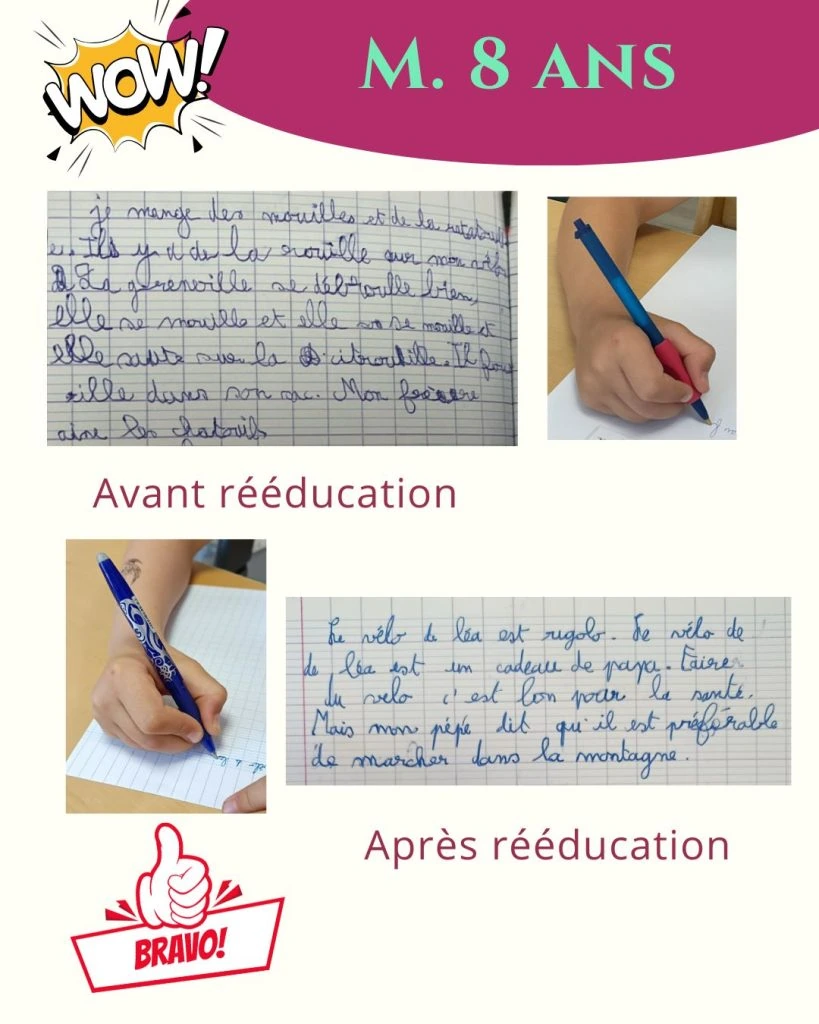 WOW!
M. 8 ANS
je mange des mouilles et de la ratatouill
e. Ils y a de la rouille sur mon vélo
La grenouille se débrouille bien,
elle se mouille et elle se mouille et
elle saute sur la citrouille. Il fou
ille dans son sac. Mon frère
aime les chatouils
Avant rééducation
Le vélo de léa est rigolo. Le vélo de
de léa est un cadeau de papa. Faire
du velo c'est bon pour la santé.
Mais mon pépé dit qu'il est préférable
de marcher dans la montagne.
Après rééducation
BRAVO!